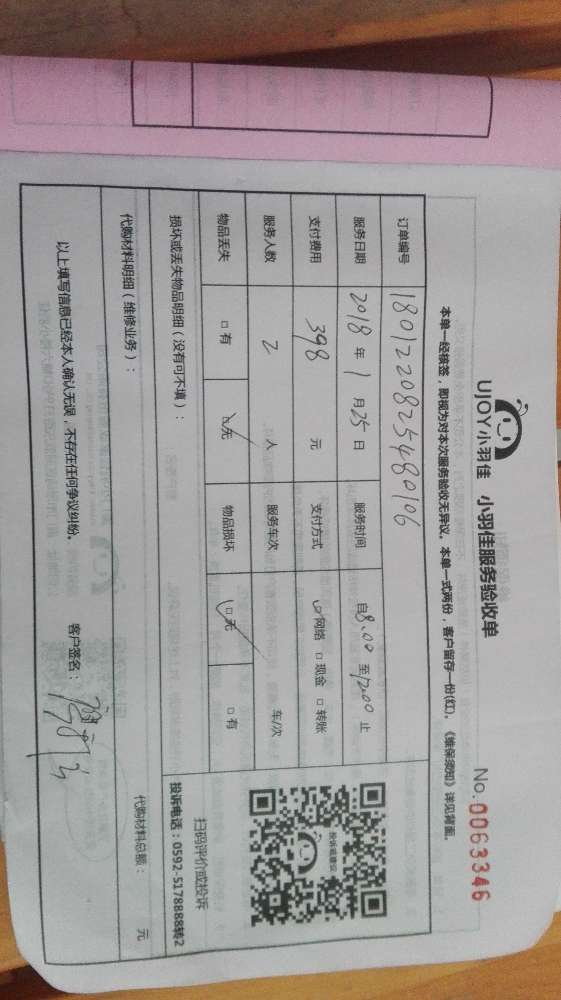 UJOY小羽佳 小羽佳服务验收单 No.0063346
本单一经核签，即视为对本次服务验收无异议。本单一式两份，客户留存一份(红)。《维保须知》详见背面。
订单编号 1801220825480106
服务日期 2018 年 1 月 25 日 服务时间 自8:00 至12:00 止
支付费用 398 元 支付方式 □网络 □现金 □转账
服务人数 2 人 服务车次 车/次
物品丢失 □有 □无 物品损坏 □无 □有
损坏或丢失物品明细（没有可不填）：
代购材料明细（维修业务）： 代购材料总额： 元
以上填写信息已经本人确认无误，不存在任何争议纠纷。 客户签名：
投诉或建议
扫码评价或投诉
投诉电话：0592-5178888转2